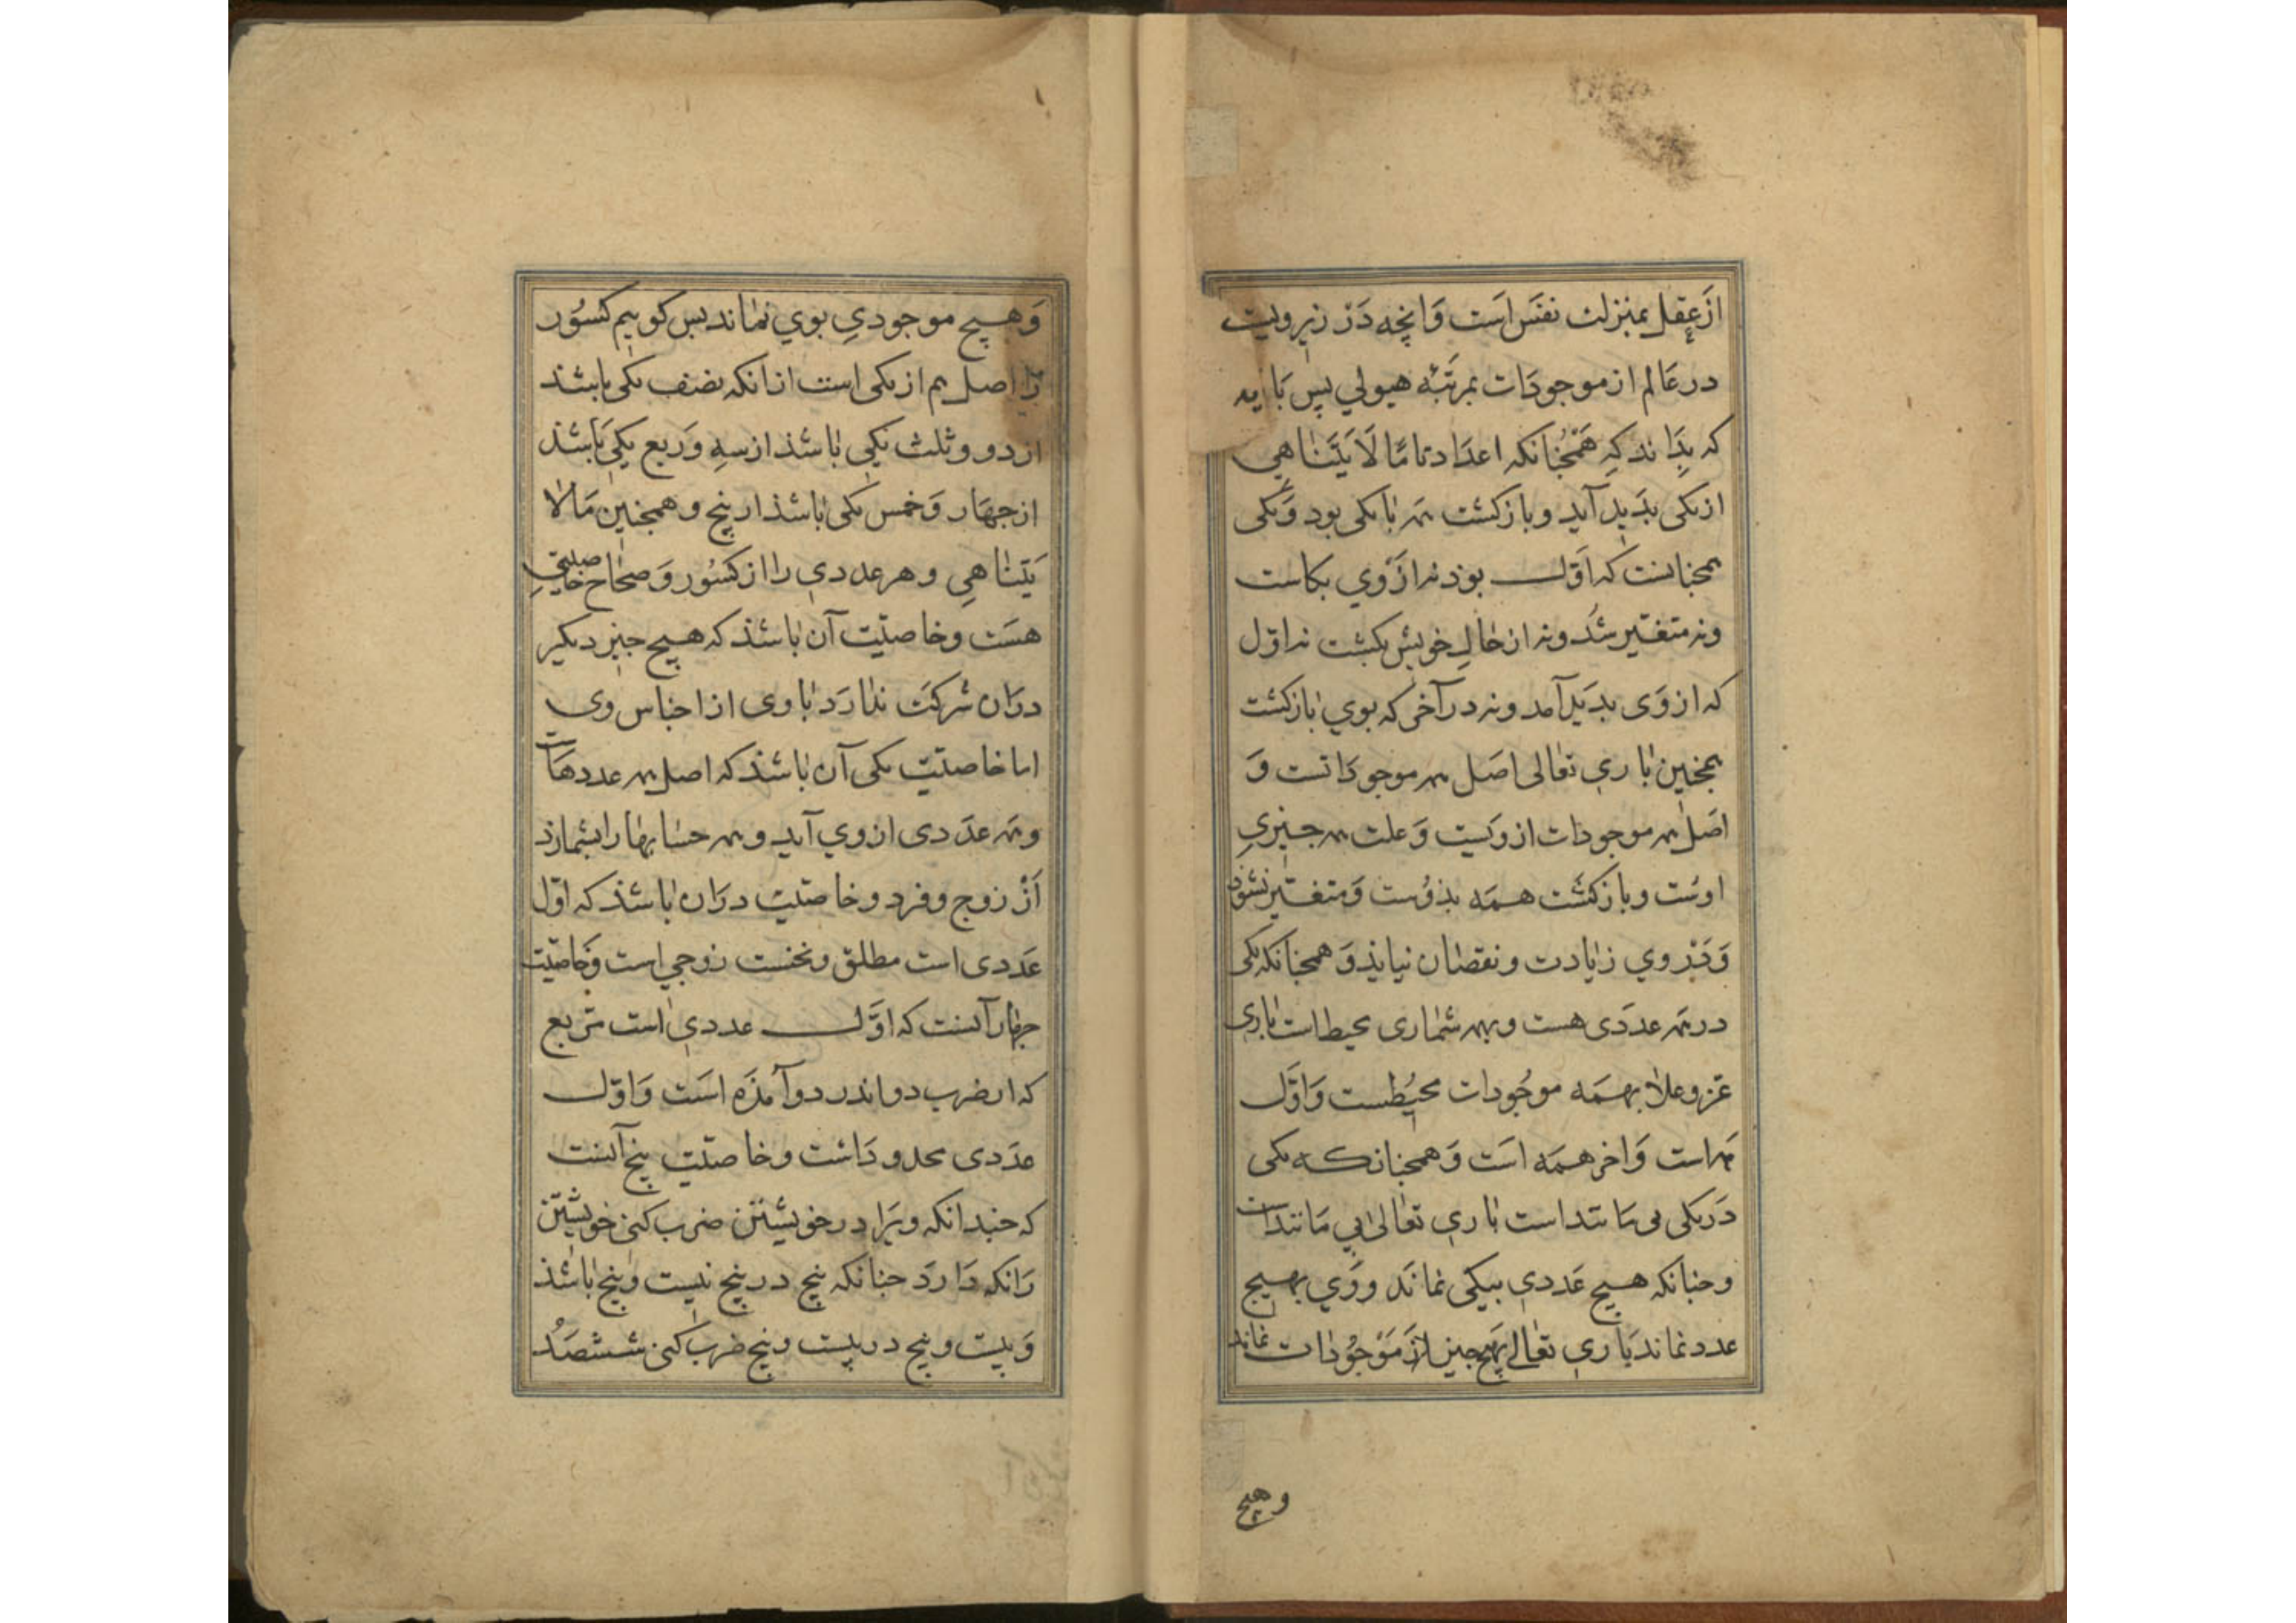 از عقل بمنزلت نفس است وانچه در زیر ویست
در عالم از موجودات بمرتبه هیولی پس باید
که بداند که همچنانکه اعداد تاما لا یتناهی
از یکی بدید آید و بازکشت همه با یکی بود و یکی
همچنانست که اول بوذ نه از وی بکاست
ونه متغیر شد ونه از حال خویش بکشت نه اول
که از وی بدید آمد ونه در آخر که بوی باز کشت
همچنین باری تعالی اصل همه موجوداتست و
اصل همه موجودات از ویست و علت همه چیزی
اوست و بازکشت همه بذوست و متغیر نشود
و در وی زیادت و نقصان نیاید و همچنانکه یکی
در همه عددی هست و بهمه شماری محیط است باری
عز و علا بهمه موجودات محیطست و اول
همه است و اخر همه است و همچنانکه یکی
در یکی بی مانند است باری تعالی بی مانند است
وچنانکه هیچ عددی بیکی نماند و وی بهیچ
عدد نماند باری تعالی بهیچ چیز از موجودات نماند
وهیچ
وهیچ موجودی بوی نماند بس کوییم کسور
را اصل هم از یکی است ازانکه نصف یکی باشد
از دو و ثلث یکی باشذ از سه و ربع یکی باشذ
از جهار و خمس یکی باشذ از پنج و همچنین مالا
یتناهی و هر عددی را از کسور و صحاح خاصیتی
هست و خاصیت آن باشذ که هیچ چیز دیکر
دران شرکت ندارد با وی از اجناس وی
اما خاصیت یکی آن باشذ که اصل همه عددهاست
وهمه عددی از وی آید و همه حسابها را بشمارد
از زوج و فرد و خاصیت دو آن باشذ که اول
عددی است مطلق و نخست زوجی است و خاصیت
جهار آنست که اول عددی است مربع
که از ضرب دو اندر دو آمذه است و اول
عددی محدود است و خاصیت پنج آنست
که چندانکه ویرا در خویشتن ضرب کنی خویشتن
را نکه دارد چنانکه پنج در پنج بیست و پنج باشذ
و بیست و پنج در بیست و پنج ضرب کنی ششصد